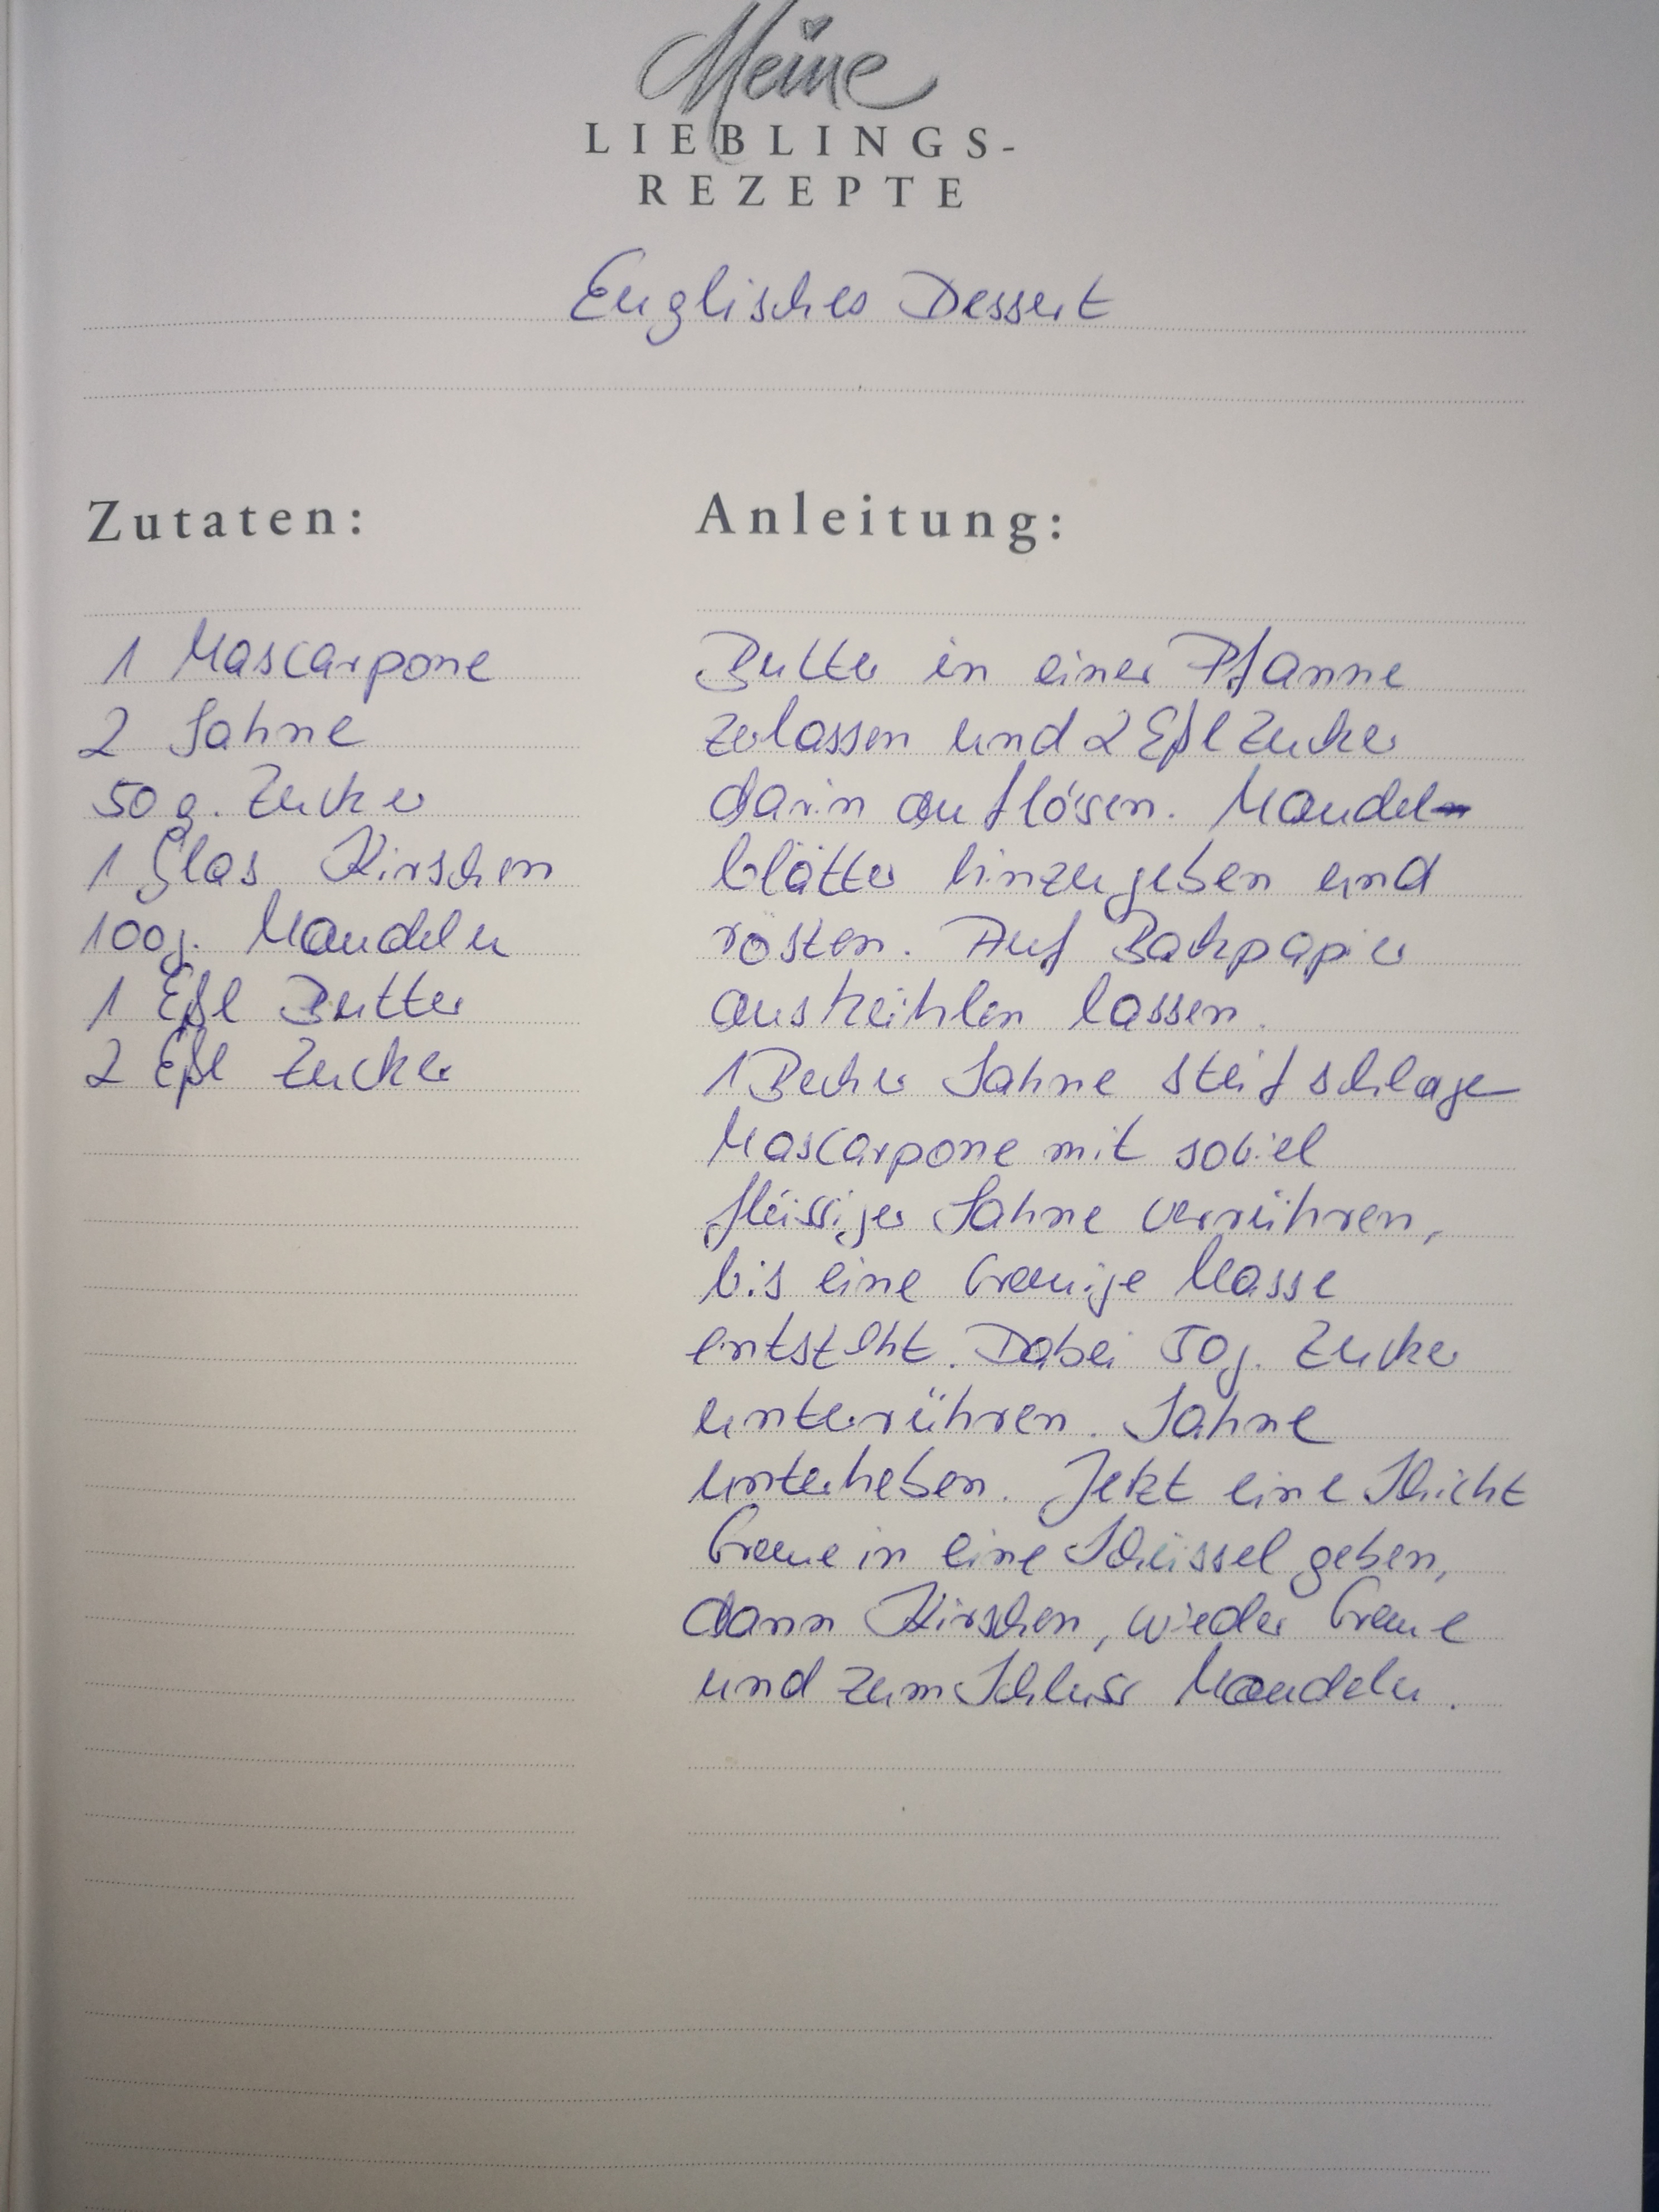 Meine
LIEBLINGS-
REZEPTE
Englisches Dessert
Zutaten:
1 Mascarpone
2 Sahne
50 g. Zucker
1 Glas Kirschen
100g. Mandeln
1 Eßl Butter
2 Eßl Zucker
Anleitung:
Butter in einer Pfanne
zerlassen und 2 Eßl Zucker
darin auflösen. Mandel-
blätter hinzugeben und
rösten. Auf Backpapier
auskühlen lassen.
1 Becher Sahne steif schlagen
Mascarpone mit soviel
flüssiger Sahne verrühren,
bis eine Cremige Masse
entsteht. Dabei 50g. Zucker
unterrühren. Sahne
unterheben. Jetzt eine Schicht
Creme in eine Schüssel geben,
dann Kirschen, wieder Creme
und zum Schluss Mandeln.